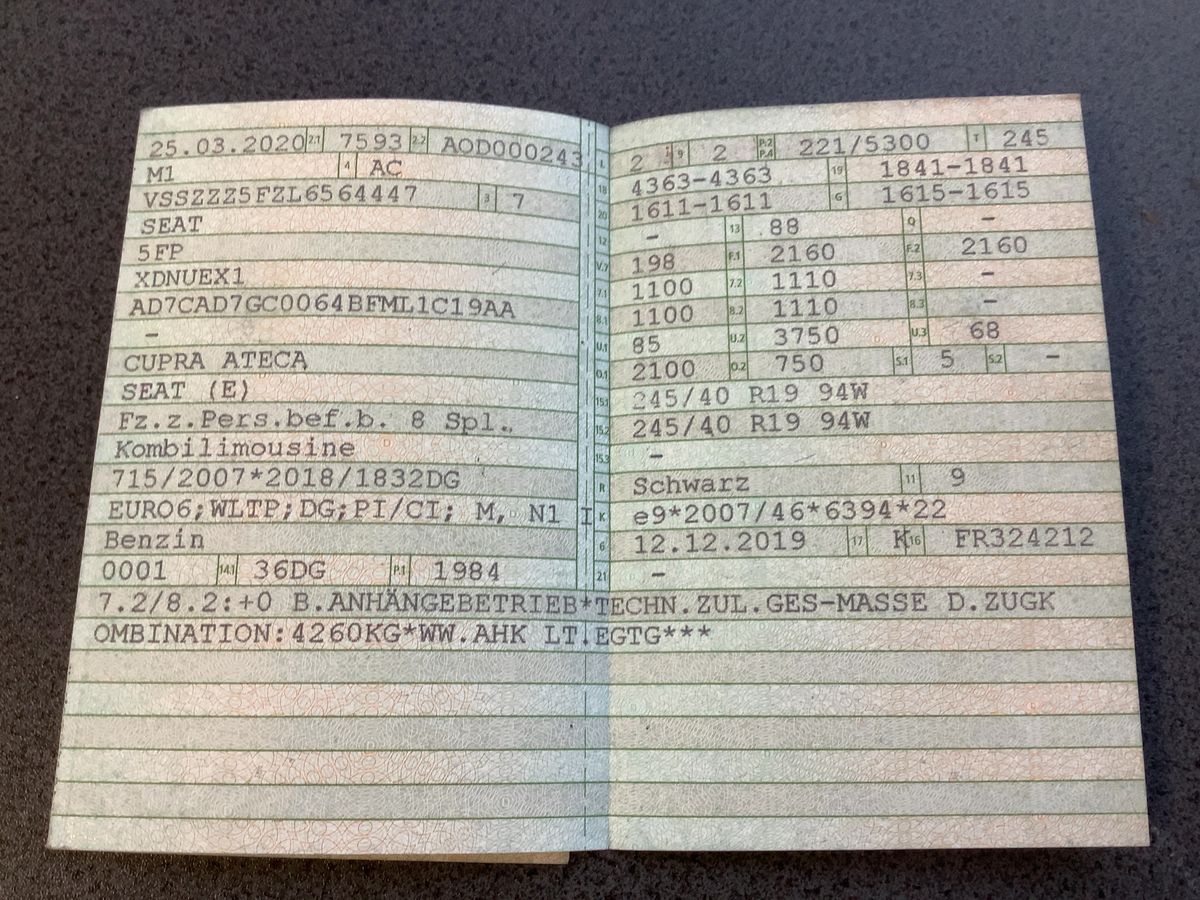 25.03.2020 2.1 7593 2.2 AOD000243 L 2 9 2 P.2 P.4 221/5300 T 245
M1 4 AC 18 4363-4363 19 1841-1841
VSSZZZ5FZL6564447 3 7 20 1611-1611 G 1615-1615
SEAT 12 - 13 88 Q -
5FP V.7 198 F.1 2160 F.2 2160
XDNUEX1 7.1 1100 7.2 1110 7.3 -
AD7CAD7GC0064BFML1C19AA 8.1 1100 8.2 1110 8.3 -
- U.1 85 U.2 3750 U.3 68
CUPRA ATECA O.1 2100 O.2 750 S.1 5 S.2 -
SEAT (E) 15.1 245/40 R19 94W
Fz.z.Pers.bef.b. 8 Spl. 15.2 245/40 R19 94W
Kombilimousine 15.3 -
715/2007*2018/1832DG R Schwarz 11 9
EURO6;WLTP;DG;PI/CI; M, N1 I K e9*2007/46*6394*22
Benzin 6 12.12.2019 17 K 16 FR324212
0001 14.1 36DG P.1 1984 21 -
7.2/8.2:+0 B.ANHÄNGEBETRIEB*TECHN.ZUL.GES-MASSE D.ZUGK
OMBINATION:4260KG*WW.AHK LT.EGTG***